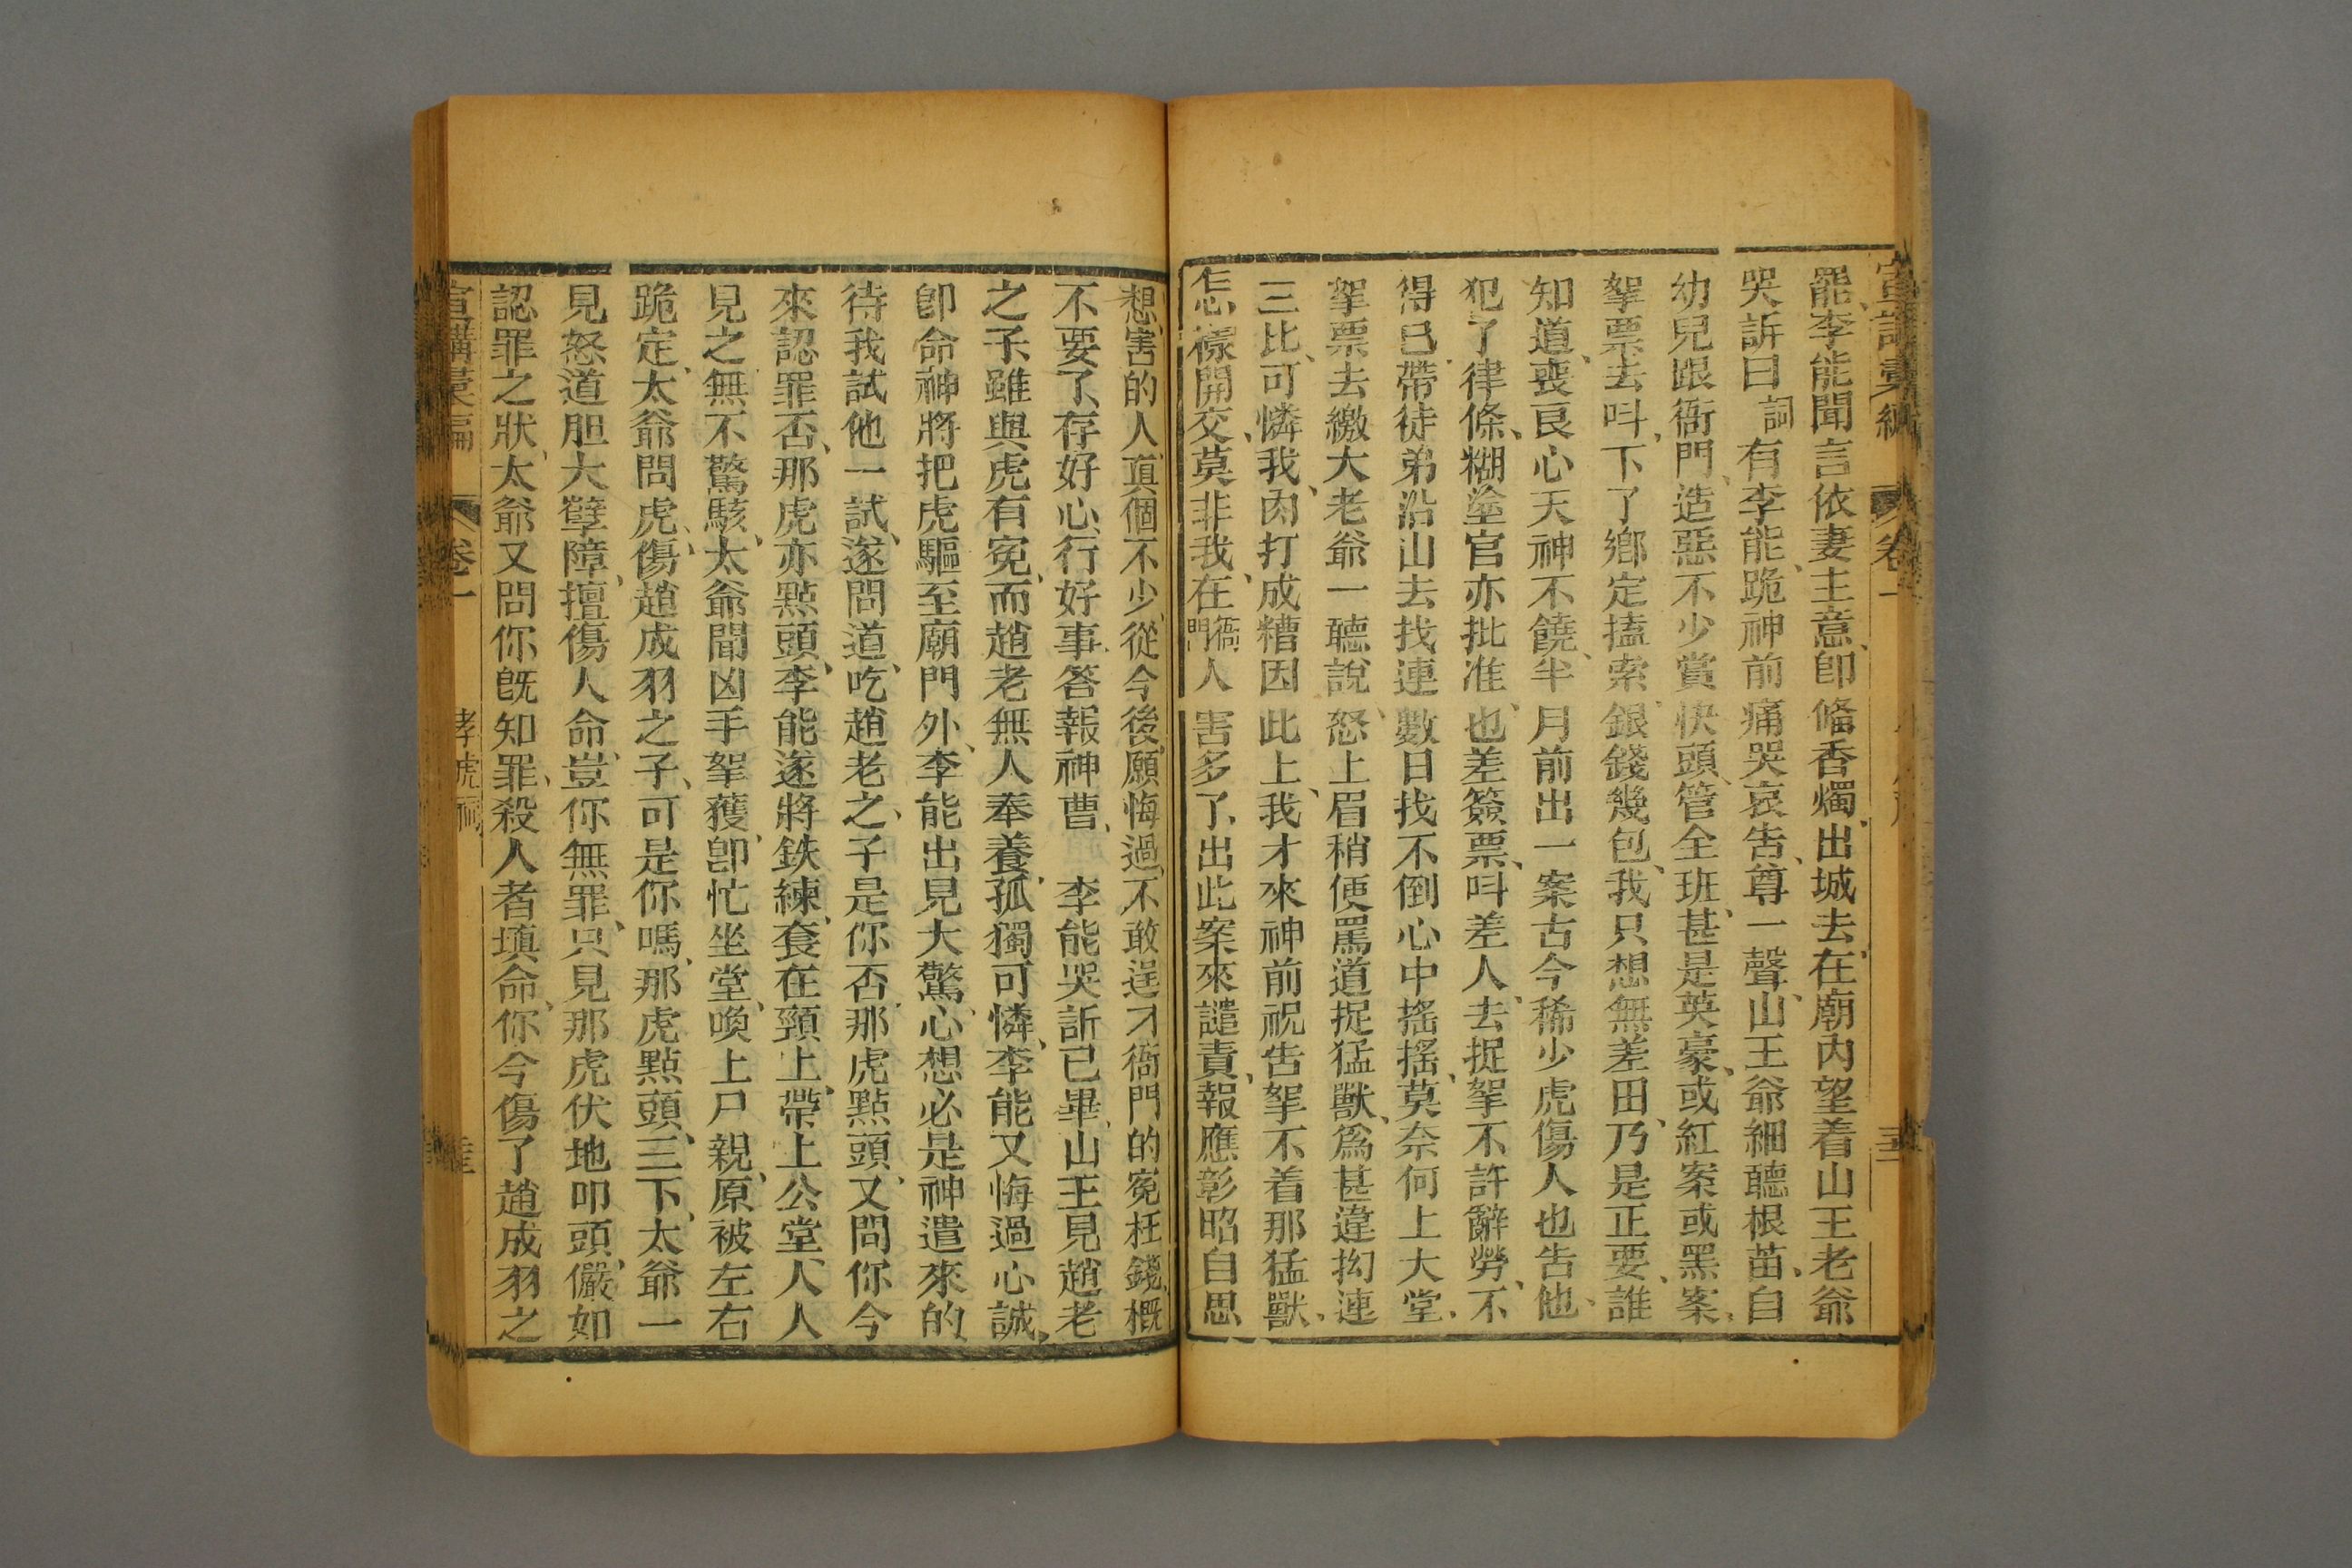 宣講彙編 卷一
罷、李能聞言依妻主意、卽偹香燭、出城去、在廟內望着山王老爺
哭訴曰詞有李能、跪神前痛哭哀告、尊一聲、山王爺細聽根苗、自
幼兒跟衙門、造惡不少賞快頭、管全班、甚是英豪、或紅案或黑案、
拏票去呌、下了鄉定搕索、銀錢幾包、我只想無差田、乃是正要、誰
知道、喪良心天神不饒、半月前出一案古今稀少虎傷人也告他、
犯了律條、糊塗官亦批准也、差簽票、呌差人、去捉拏不許辭勞、不
得已、帶徒弟沿山去找連數日找不倒心中搖搖、莫奈何上大堂、
拏票去繳大老爺一聽說怒、上眉稍便罵道捉猛獸、爲甚違拗連
三比、可憐我、肉打成糟因此上、我才來神前祝告拏不着那猛獸、
怎樣開交、莫非我、在衙門人害多了、出此案來譴責、報應彰昭自思
想、害的人、眞個不少、從今後、願悔過、不敢逞刁衙門的寃枉錢、槪
不要了、存好心、行好事、答報神曹、李能哭訴已畢、山王見趙老
之子、雖與虎有寃、而趙老無人奉養、孤獨可憐、李能又悔過心誠、
卽命神將把虎驅至廟門外、李能出見大驚、心想必是神遣來的
待我試他一試、遂問道、吃趙老之、子是你否、那虎點頭、又問你今
來認罪否、那虎亦點頭、李能遂將鉄練、套在頸上、帶上公堂、人人
見之無不驚駭、太爺聞凶手拏獲、卽忙坐堂、喚上尸親、原被左右
跪定、太爺問虎、傷趙成羽之子、可是你嗎、那虎點頭、三下、太爺一
見怒道胆大孽障、擅傷人命、豈你無罪、只見那虎伏地叩頭、儼如
認罪之狀、太爺又問你旣知罪、殺人者塡命、你今傷了趙成羽之
宣講彙編 卷一 孝虎祠